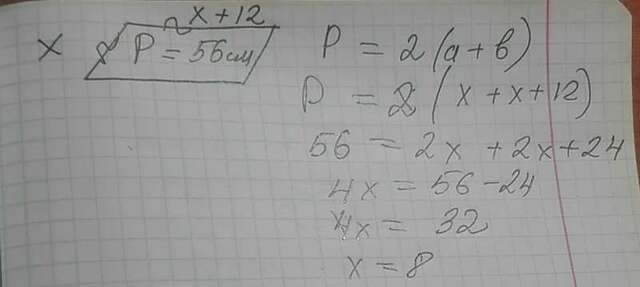 x + 12
x P = 56 см
P = 2 (a + b)
P = 2 (x + x + 12)
56 = 2x + 2x + 24
4x = 56 - 24
4x = 32
x = 8